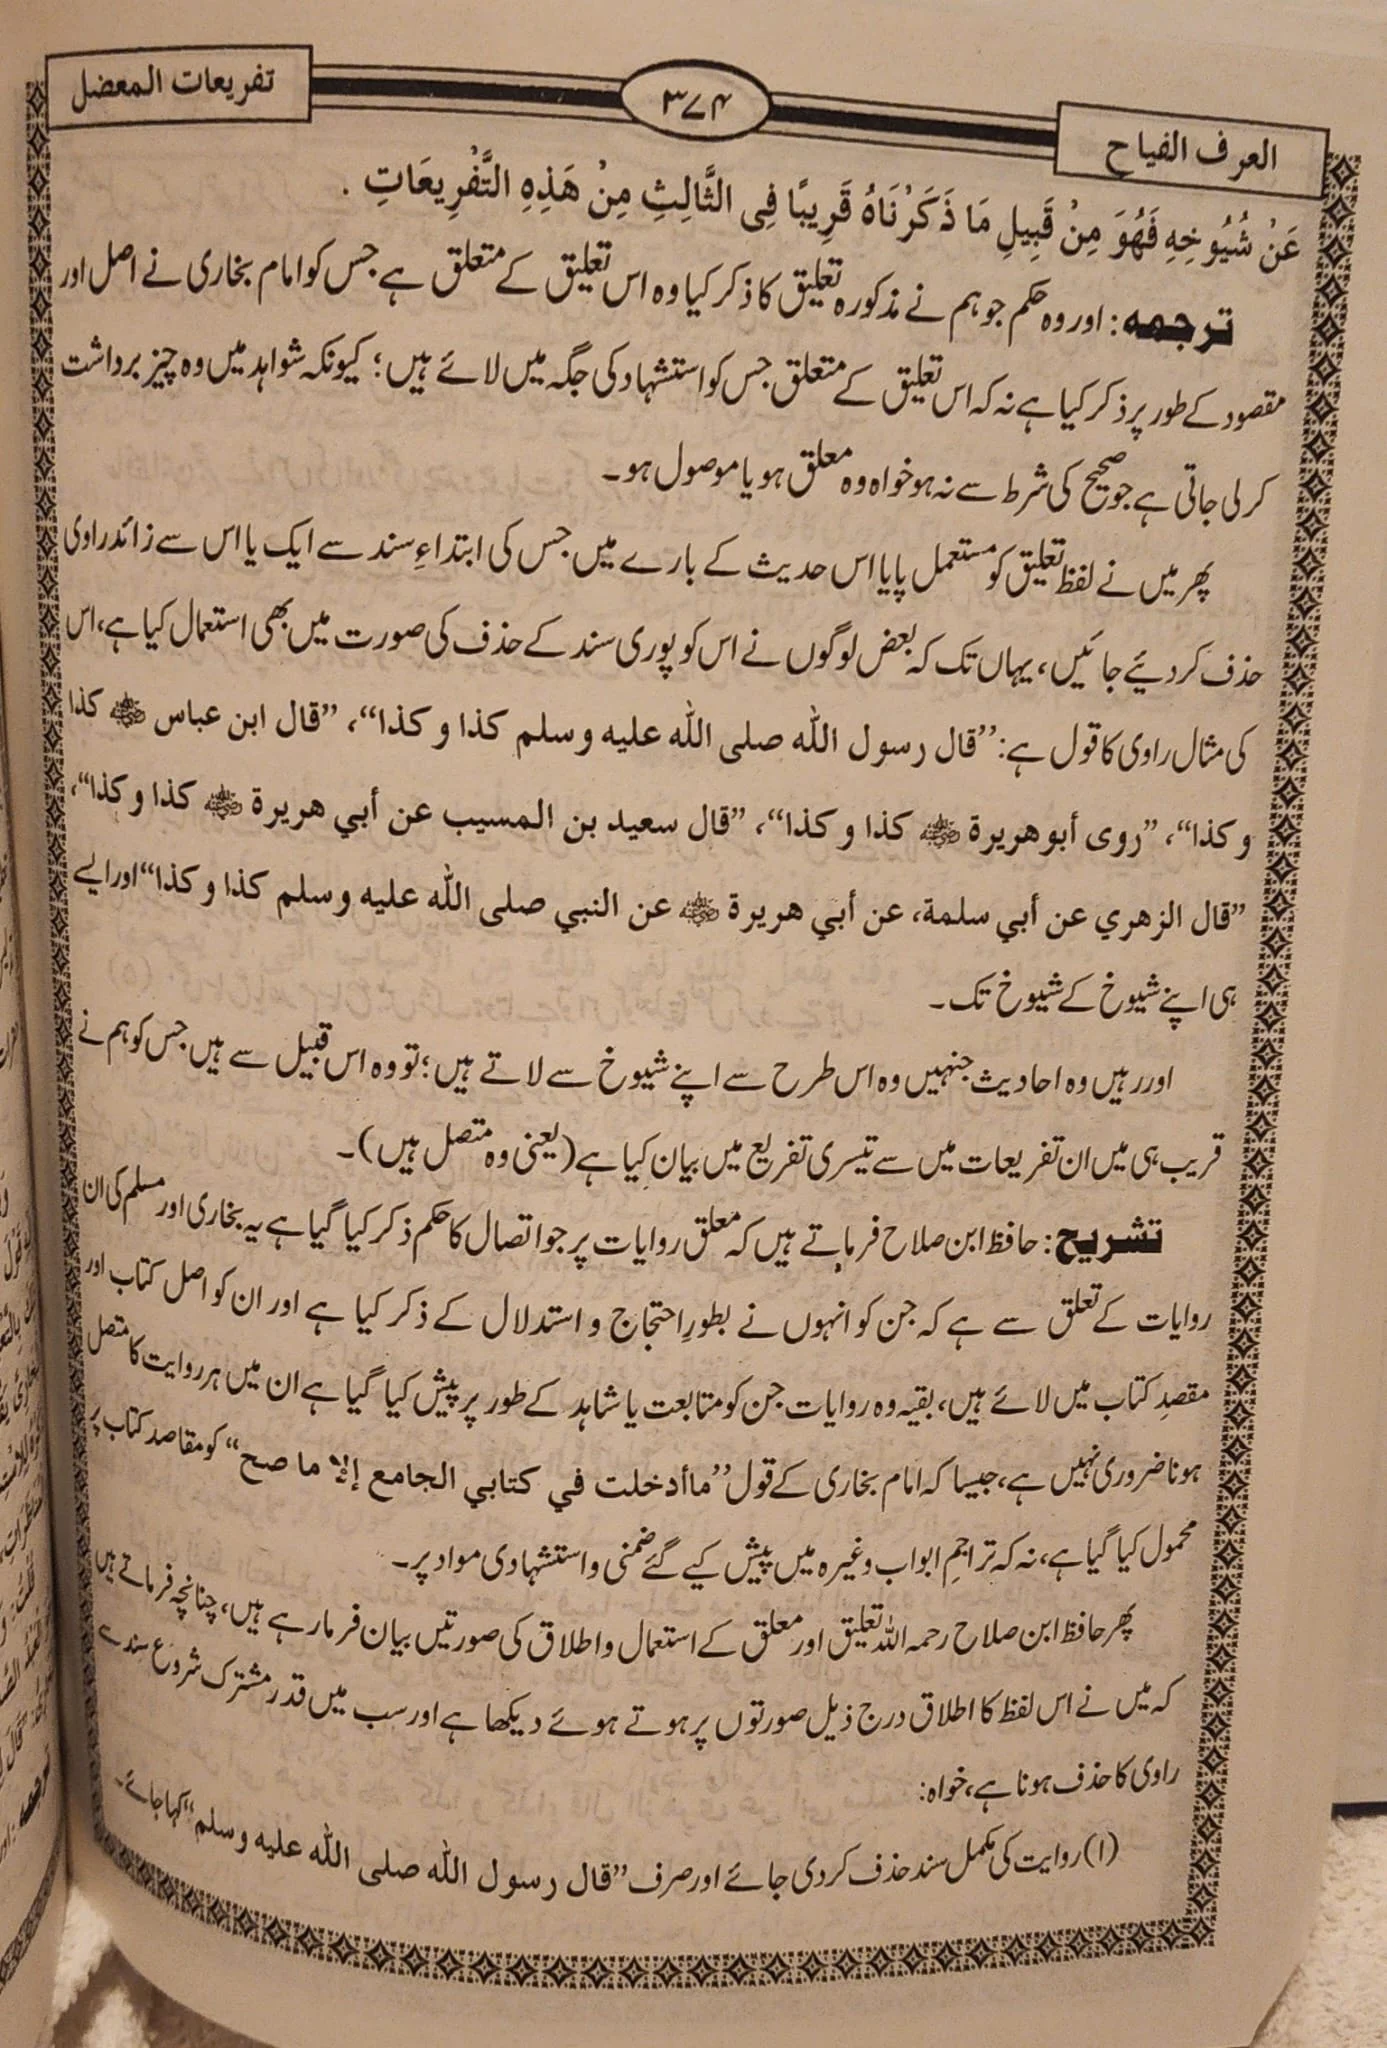 العرف الفیاح
۳۷۴
تفریعات المعضل
عَنْ شُيُوخِهِ فَهُوَ مِنْ قَبِيلِ مَا ذَكَرْنَاهُ قَرِيبًا فِى الثَّالِثِ مِنْ هَذِهِ التَّفْرِيعَاتِ .
ترجمہ: اور وہ حکم جو ہم نے مذکورہ تعلیق کا ذکر کیا وہ اس تعلیق کے متعلق ہے جس کو امام بخاری نے اصل اور
مقصود کے طور پر ذکر کیا ہے نہ کہ اس تعلیق کے متعلق جس کو استشہاد کی جگہ میں لائے ہیں؛ کیونکہ شواہد میں وہ چیز برداشت
کر لی جاتی ہے جو صحیح کی شرط سے نہ ہو خواہ وہ معلق ہو یا موصول ہو۔
پھر میں نے لفظ تعلیق کو مستعمل پایا اس حدیث کے بارے میں جس کی ابتداءِ سند سے ایک یا اس سے زائد راوی
حذف کر دیئے جائیں، یہاں تک کہ بعض لوگوں نے اس کو پوری سند کے حذف کی صورت میں بھی استعمال کیا ہے، اس
کی مثال راوی کا قول ہے: ’’قال رسول اللہ صلی اللہ علیہ وسلم کذا و کذا‘‘، ’’قال ابن عباس رضی اللہ عنہ کذا
و کذا‘‘، ’’روی أبوهریرة رضی اللہ عنہ کذا و کذا‘‘، ’’قال سعید بن المسیب عن أبي هریرة رضی اللہ عنہ کذا و کذا‘‘،
’’قال الزهري عن أبي سلمة، عن أبي هریرة رضی اللہ عنہ عن النبي صلی اللہ علیہ وسلم کذا و کذا‘‘ اور ایسے
ہی اپنے شیوخ کے شیوخ تک۔
اور رہیں وہ احادیث جنہیں وہ اس طرح سے اپنے شیوخ سے لاتے ہیں؛ تو وہ اس قبیل سے ہیں جس کو ہم نے
قریب ہی میں ان تفریعات میں سے تیسری تفریع میں بیان کیا ہے (یعنی وہ متصل ہیں)۔
تشریح: حافظ ابن صلاح فرماتے ہیں کہ معلق روایات پر جو اتصال کا حکم ذکر کیا گیا ہے یہ بخاری اور مسلم کی ان
روایات کے تعلق سے ہے کہ جن کو انہوں نے بطورِ احتجاج و استدلال کے ذکر کیا ہے اور ان کو اصل کتاب اور
مقصدِ کتاب میں لائے ہیں، بقیہ وہ روایات جن کو متابعت یا شاہد کے طور پر پیش کیا گیا ہے ان میں ہر روایت کا متصل
ہونا ضروری نہیں ہے، جیسا کہ امام بخاری کے قول ’’ماأدخلت في کتابي الجامع إلا ما صح‘‘ کو مقاصد کتاب پر
محمول کیا گیا ہے، نہ کہ تراجمِ ابواب وغیرہ میں پیش کیے گئے ضمنی و استشہادی مواد پر۔
پھر حافظ ابن صلاح رحمہ اللہ تعلیق اور معلق کے استعمال و اطلاق کی صورتیں بیان فرما رہے ہیں، چنانچہ فرماتے ہیں
کہ میں نے اس لفظ کا اطلاق درج ذیل صورتوں پر ہوتے ہوئے دیکھا ہے اور سب میں قدر مشترک شروع سند سے
راوی کا حذف ہونا ہے، خواہ:
(۱) روایت کی مکمل سند حذف کر دی جائے اور صرف ’’قال رسول اللہ صلی اللہ علیہ وسلم‘‘ کہا جائے۔